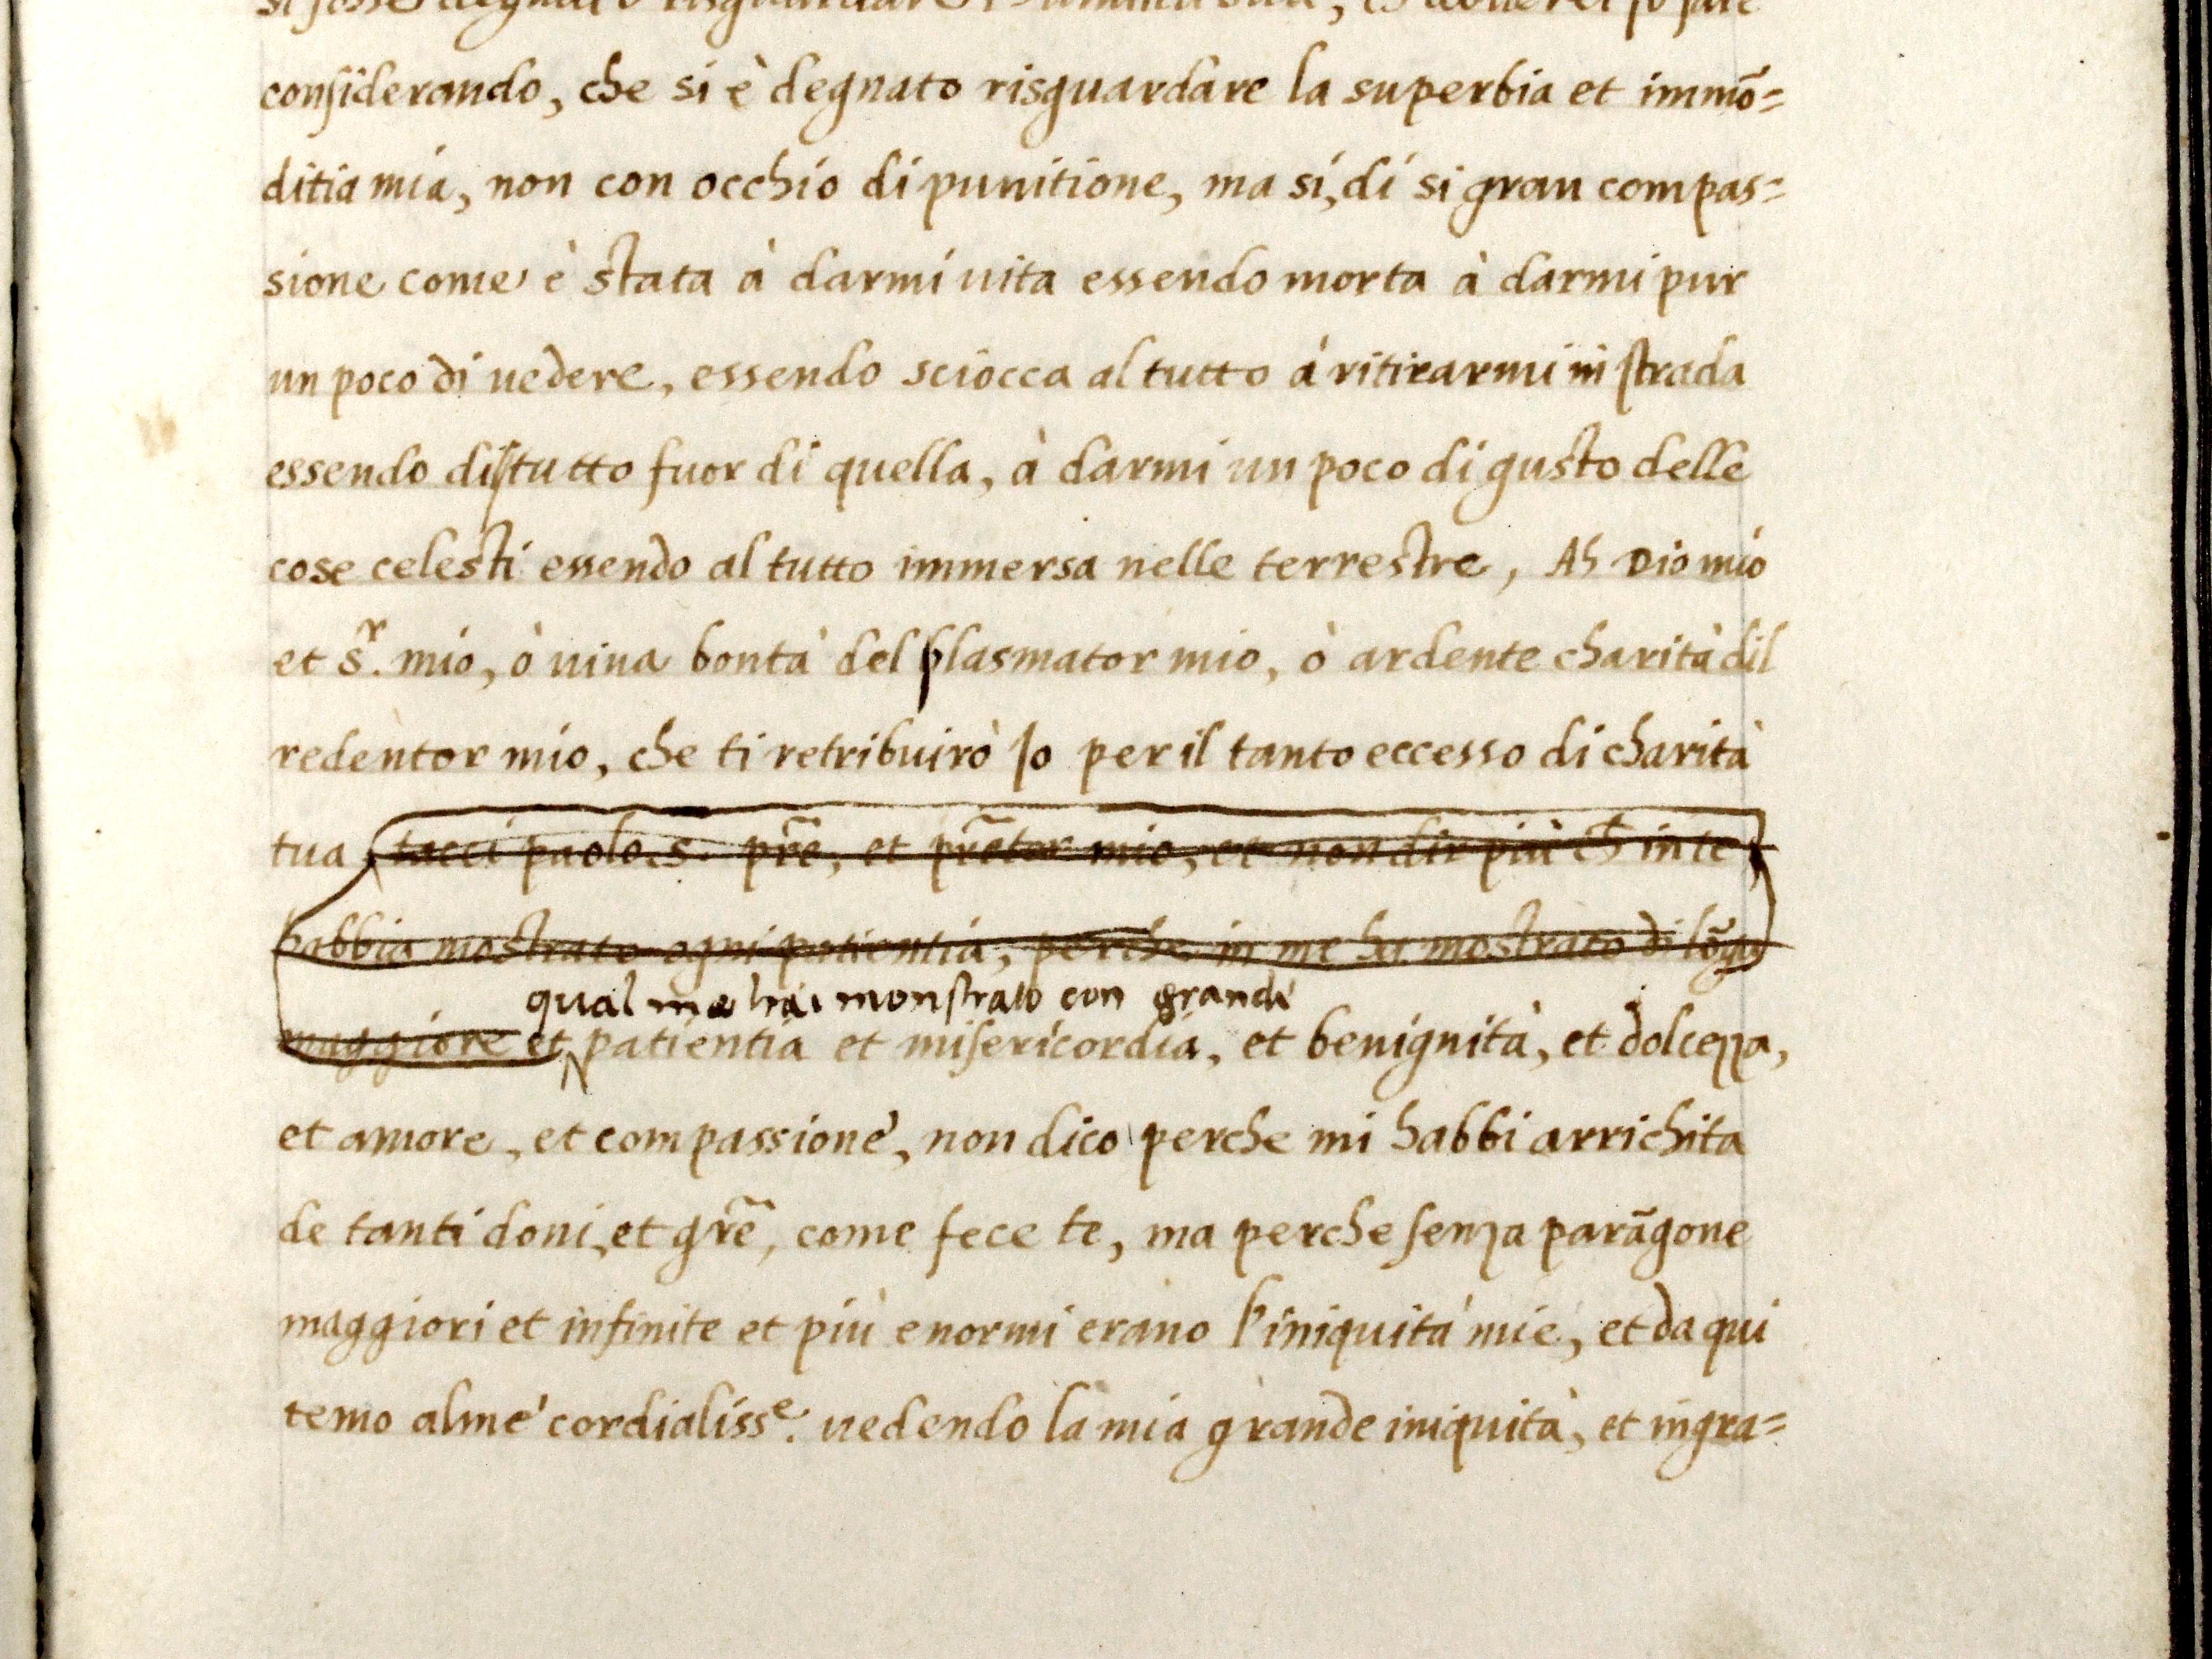 considerando, che si è degnato risguardare la superbia et immõ=
ditia mia, non con occhio di punitione, ma si, di si gran compas=
sione come è stata à darmi uita essendo morta à darmi pur
un poco di uedere, essendo sciocca al tutto à ritirarmi in strada
essendo di tutto fuor di quella, à darmi un poco di gusto delle
cose celesti essendo al tutto immersa nelle terrestre, Ah Dio mio
et s.r mio, ò uiua bontà del plasmator mio, ò ardente charità dil
redentor mio, che ti retribuirò Io per il tanto eccesso di charità
tua, tacci paolo s. pr̃e, et pr̃etor mio, et non dir più ch̃ in te
habbia mostrato ogni patientia, perche in me ha mostrato di lõga
qual me hai monstrato con grande
maggiore et patientia et misericordia, et benignità, et dolcezza,
et amore, et compassione, non dico perche mi habbi arrichita
de tanti doni, et gr̃e, come fece te, ma perche senza parãgone
maggiori et infinite et più enormi erano l'iniquità mie, et da qui
temo alme cordialiss.e uedendo la mia grande iniquità, et ingra=